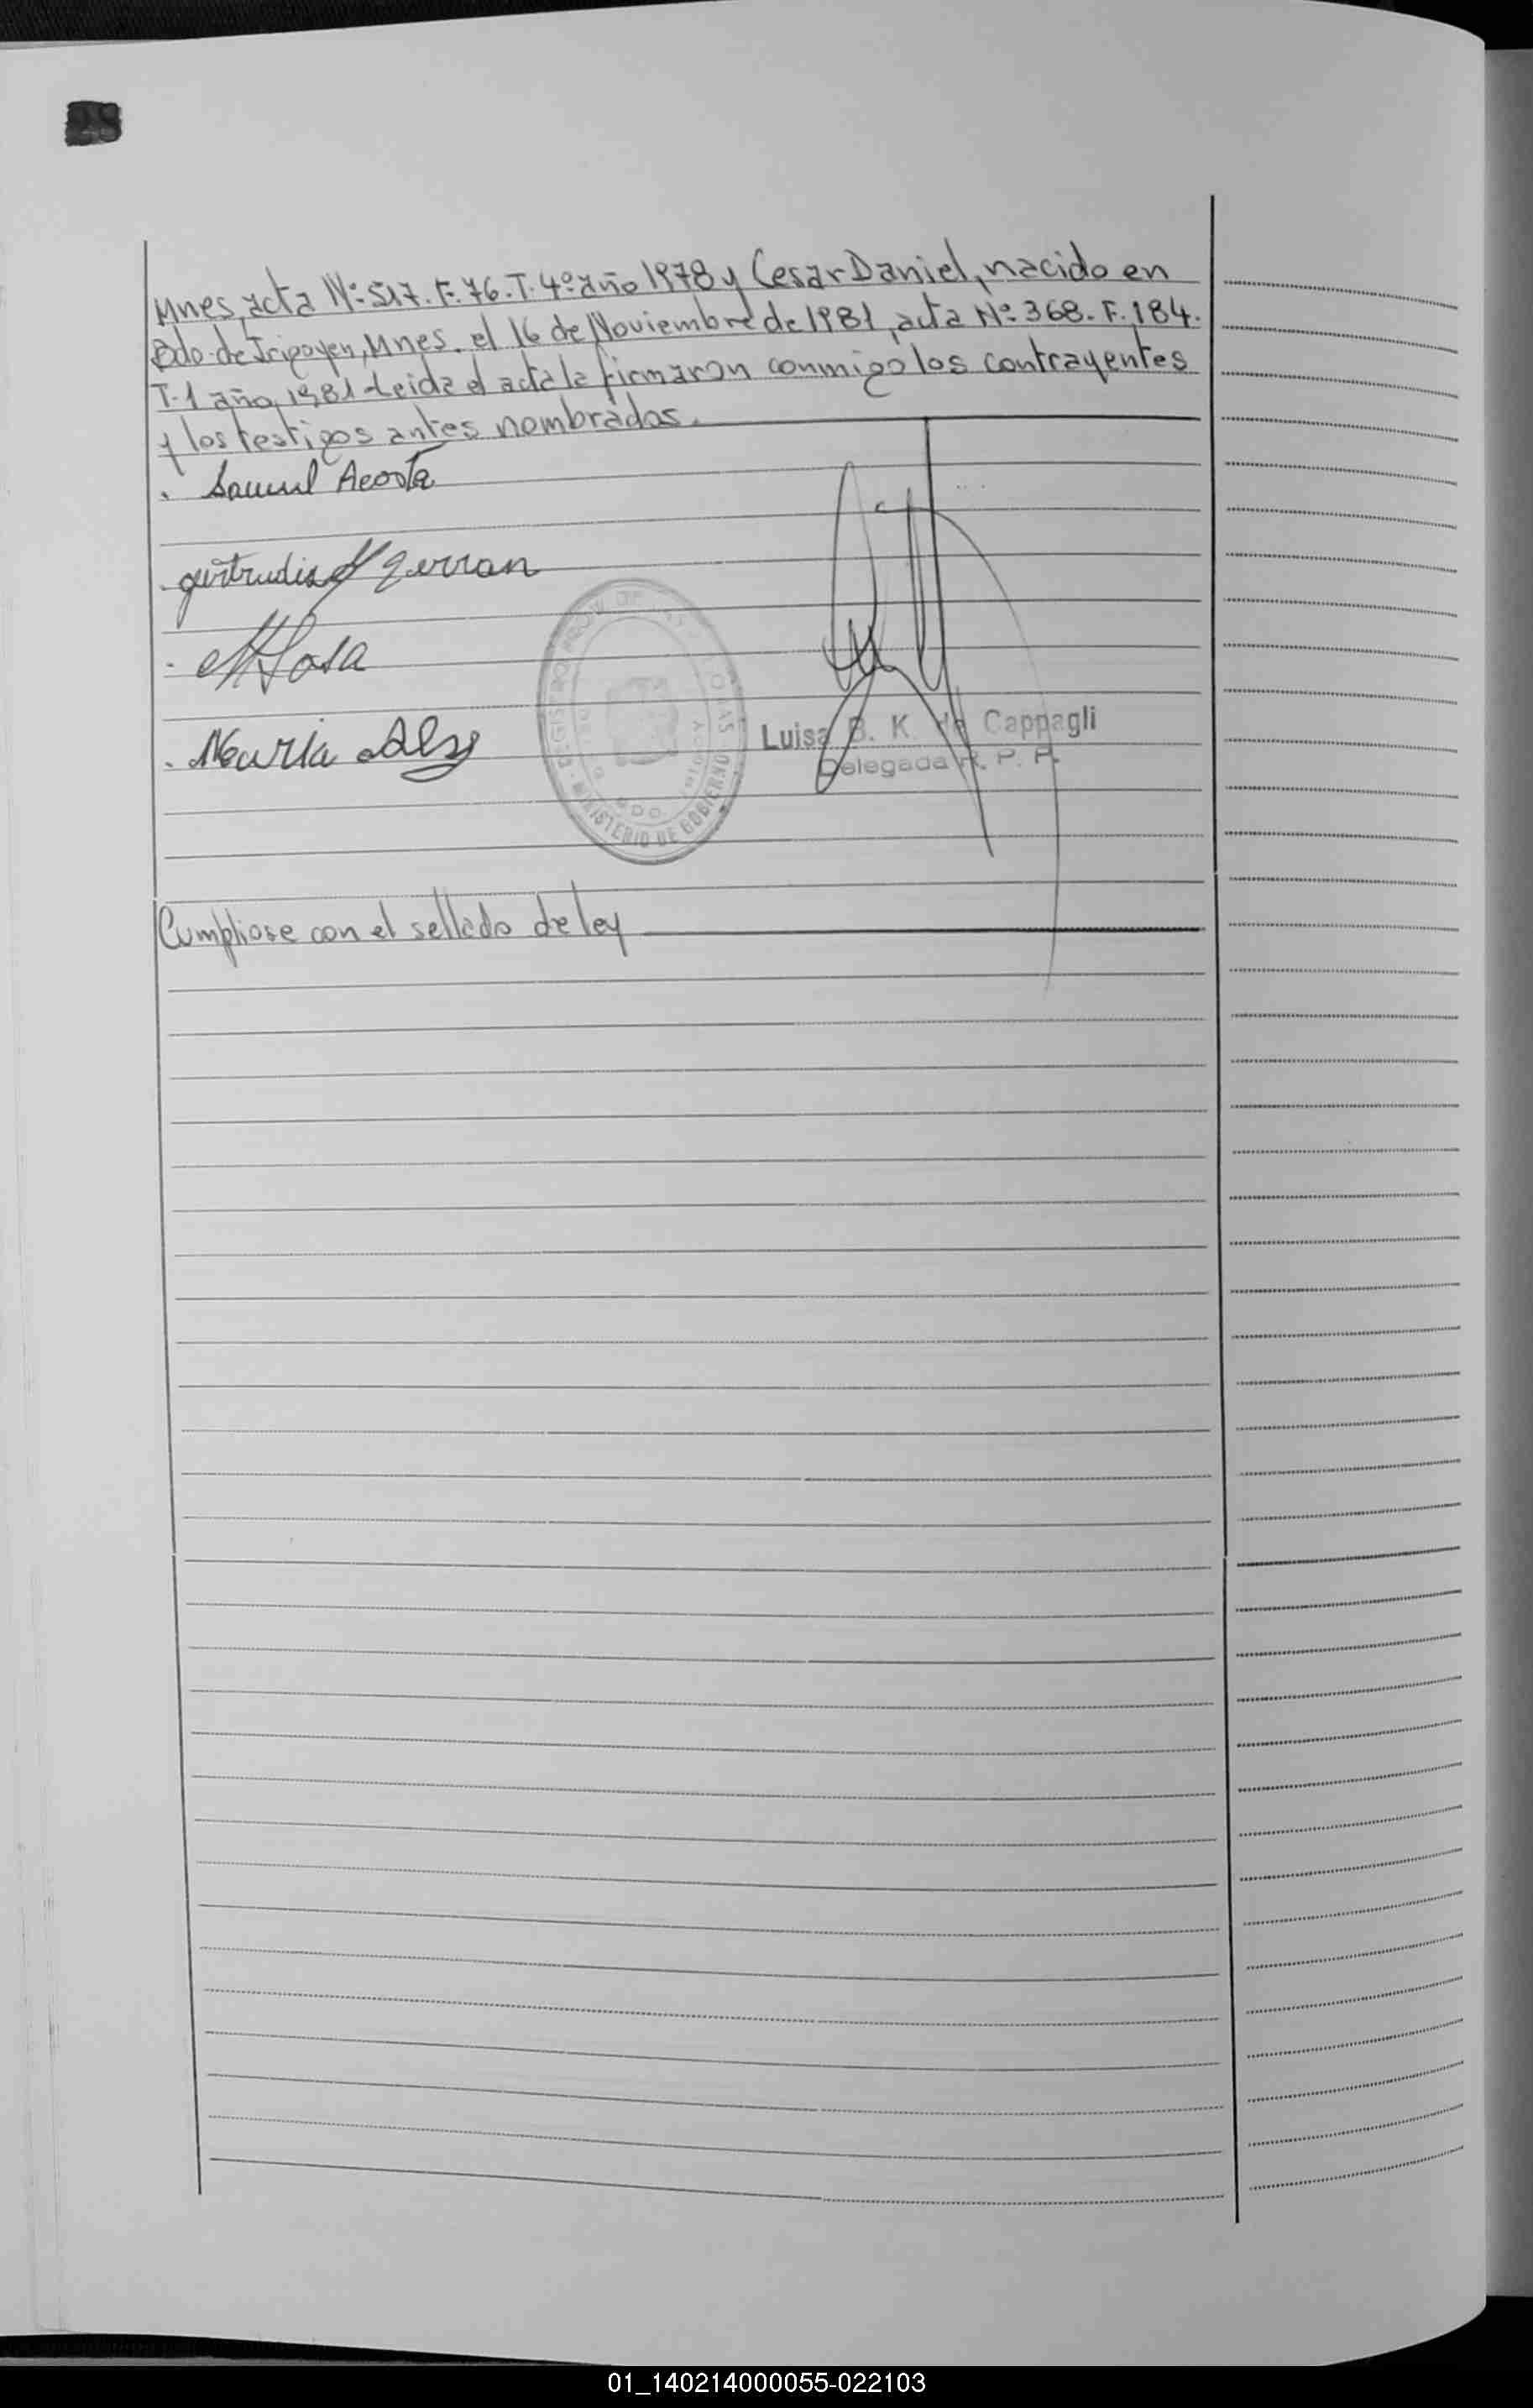 Mnes, acta Nº: 517. F. 76. T. 4º año 1978 y Cesar Daniel, nacido en
Bdo. de Irigoyen, Mnes. el 16 de Noviembre de 1981, acta Nº 368. F. 184.
T. 1 año 1981 Leida el acta la firmaron conmigo los contrayentes
y los testigos antes nombrados.
Samuel Acosta
MINISTERIO DE GOBIERNO
Luisa B. K. de Cappagli
Delegada R. P. P.
Cumpliose con el sellado de ley
01_140214000055-022103